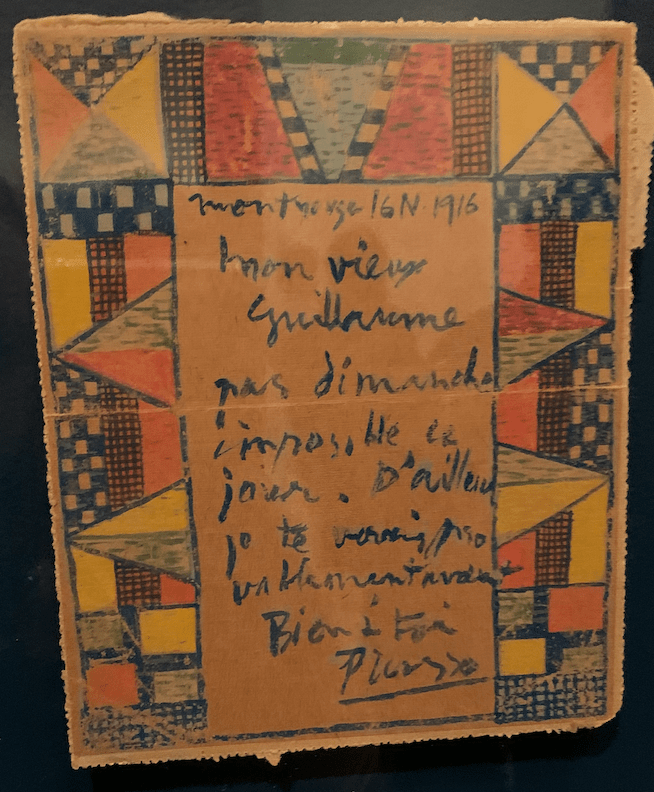 montrouge 16 N. 1916
mon vieux
Guillaume
pas dimanche
imposible ce
jour. D'ailleur
je te verais pro
vablement avant
Bien à toi
Picasso